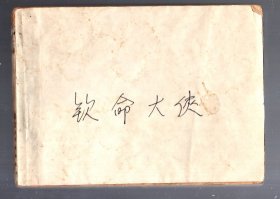 钦命大侠